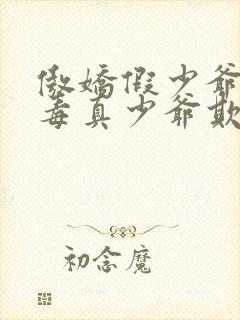 傲娇假少爷
毒真少爷欺
初念魔